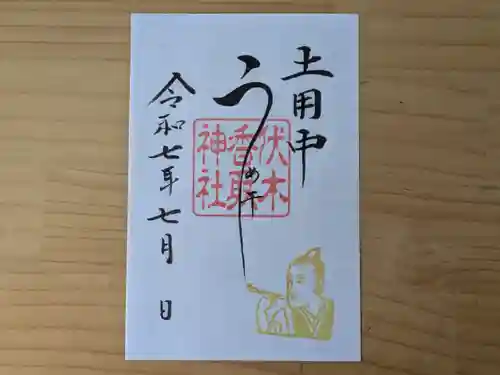 土用中
う
め干
伏木
香取
神社
令和七年七月　日